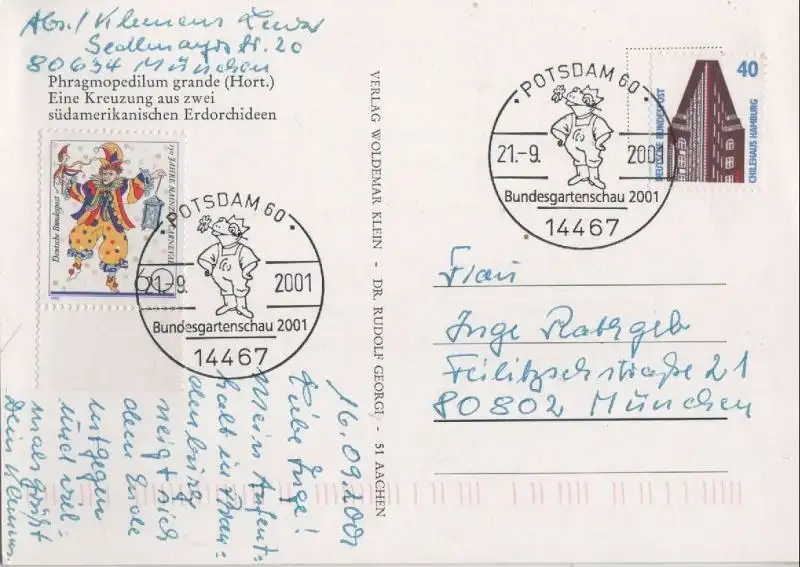 Abs./ Klemens
Sedlmayrstr. 20
80634 München
Phragmopedilum grande (Hort.)
Eine Kreuzung aus zwei
südamerikanischen Erdorchideen
150 JAHRE MAINZER CARNEVAL
Deutsche Bundespost
60
POTSDAM 60
21.-9. 2001
Bundesgartenschau 2001
14467
VERLAG WOLDEMAR KLEIN - DR. RUDOLF GEORGI - 51 AACHEN
POTSDAM 60
21.-9. 2001
Bundesgartenschau 2001
14467
40
DEUTSCHE BUNDESPOST
CHILEHAUS HAMBURG
Frau
Inge Rathgeb
Feilitzschstraße 21
80802 München
16.09.2001
Liebe Inge!
Mein Aufent-
halt in Bran-
denburg
neigt sich
dem Ende
entgegen
und viel-
mals grüßt
Dein Klemens.